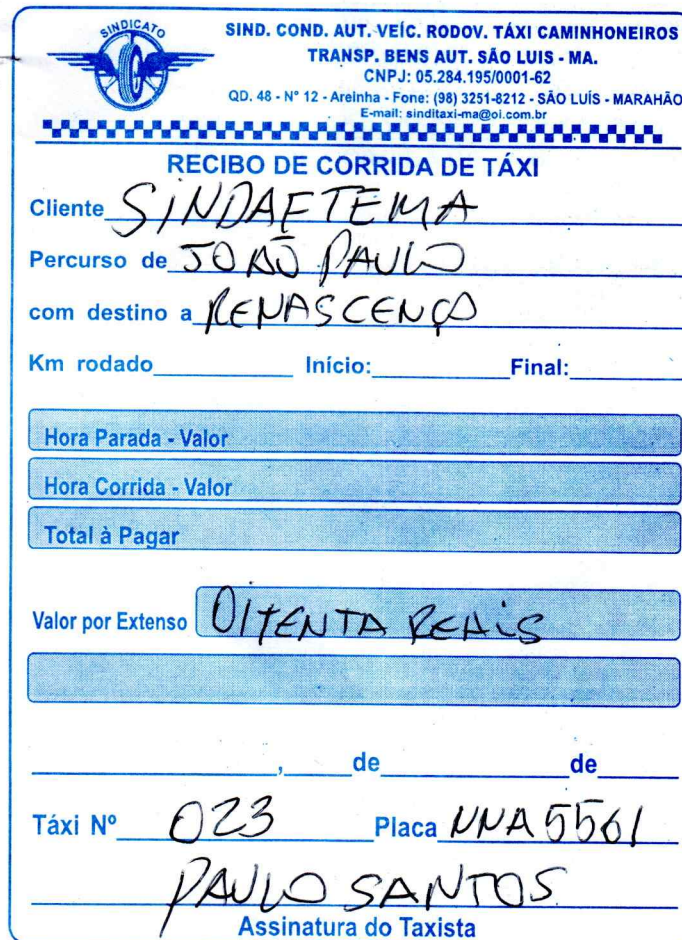 SINDICATO
SIND. COND. AUT. VEÍC. RODOV. TÁXI CAMINHONEIROS
TRANSP. BENS AUT. SÃO LUIS - MA.
CNPJ: 05.284.195/0001-62
QD. 48 - N° 12 - Areinha - Fone: (98) 3251-8212 - SÃO LUÍS - MARAHÃO
E-mail: sinditaxi-ma@oi.com.br
RECIBO DE CORRIDA DE TÁXI
Cliente SINDAFTEMA
Percurso de JOÃO PAULO
com destino a RENASCENÇA
Km rodado Início: Final:
Hora Parada - Valor
Hora Corrida - Valor
Total à Pagar
Valor por Extenso OITENTA REAIS
, de de
Táxi Nº 023 Placa NNA 5561
PAULO SANTOS
Assinatura do Taxista